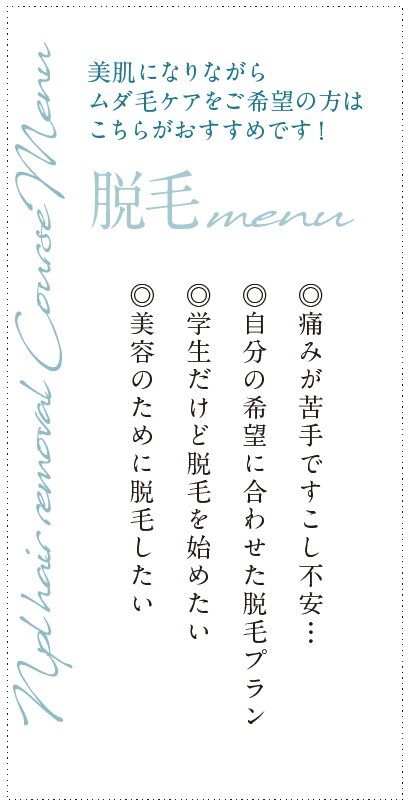 美肌になりながら
ムダ毛ケアをご希望の方は
こちらがおすすめです！
脱毛menu
◎痛みが苦手ですこし不安…
◎自分の希望に合わせた脱毛プラン
◎学生だけど脱毛を始めたい
◎美容のために脱毛したい
Npl hair removal Course Menu